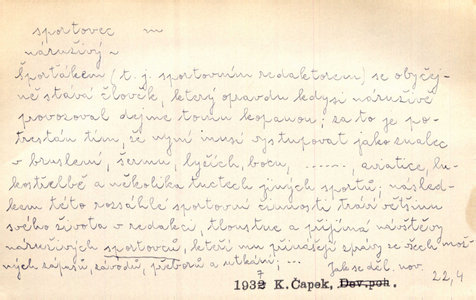 sportovec m
náruživý ~
Šporťákem (t. j. sportovním redaktorem) se obyčej-
ně stává člověk, který opravdu kdysi náruživě
provozoval dejme tomu kopanou; za to je po-
trestán tím, že nyní musí vystupovat jako znalec
v bruslení, šermu, lyžích, boxu, ......., aviatice, lu-
kostřelbě a několika tuctech jiných sportů; násled-
kem této rozsáhlé sportovní činnosti tráví většinu
svého života v redakci, tloustne a přijímá návštěvy
náruživých sportovců, kteří mu přinášejí zprávy ze všech mož-
ných zápasů, závodů, přeborů a utkání; ...
Jak se děl. nov.
1937 K. Čapek, Dev.poh. 22, 4